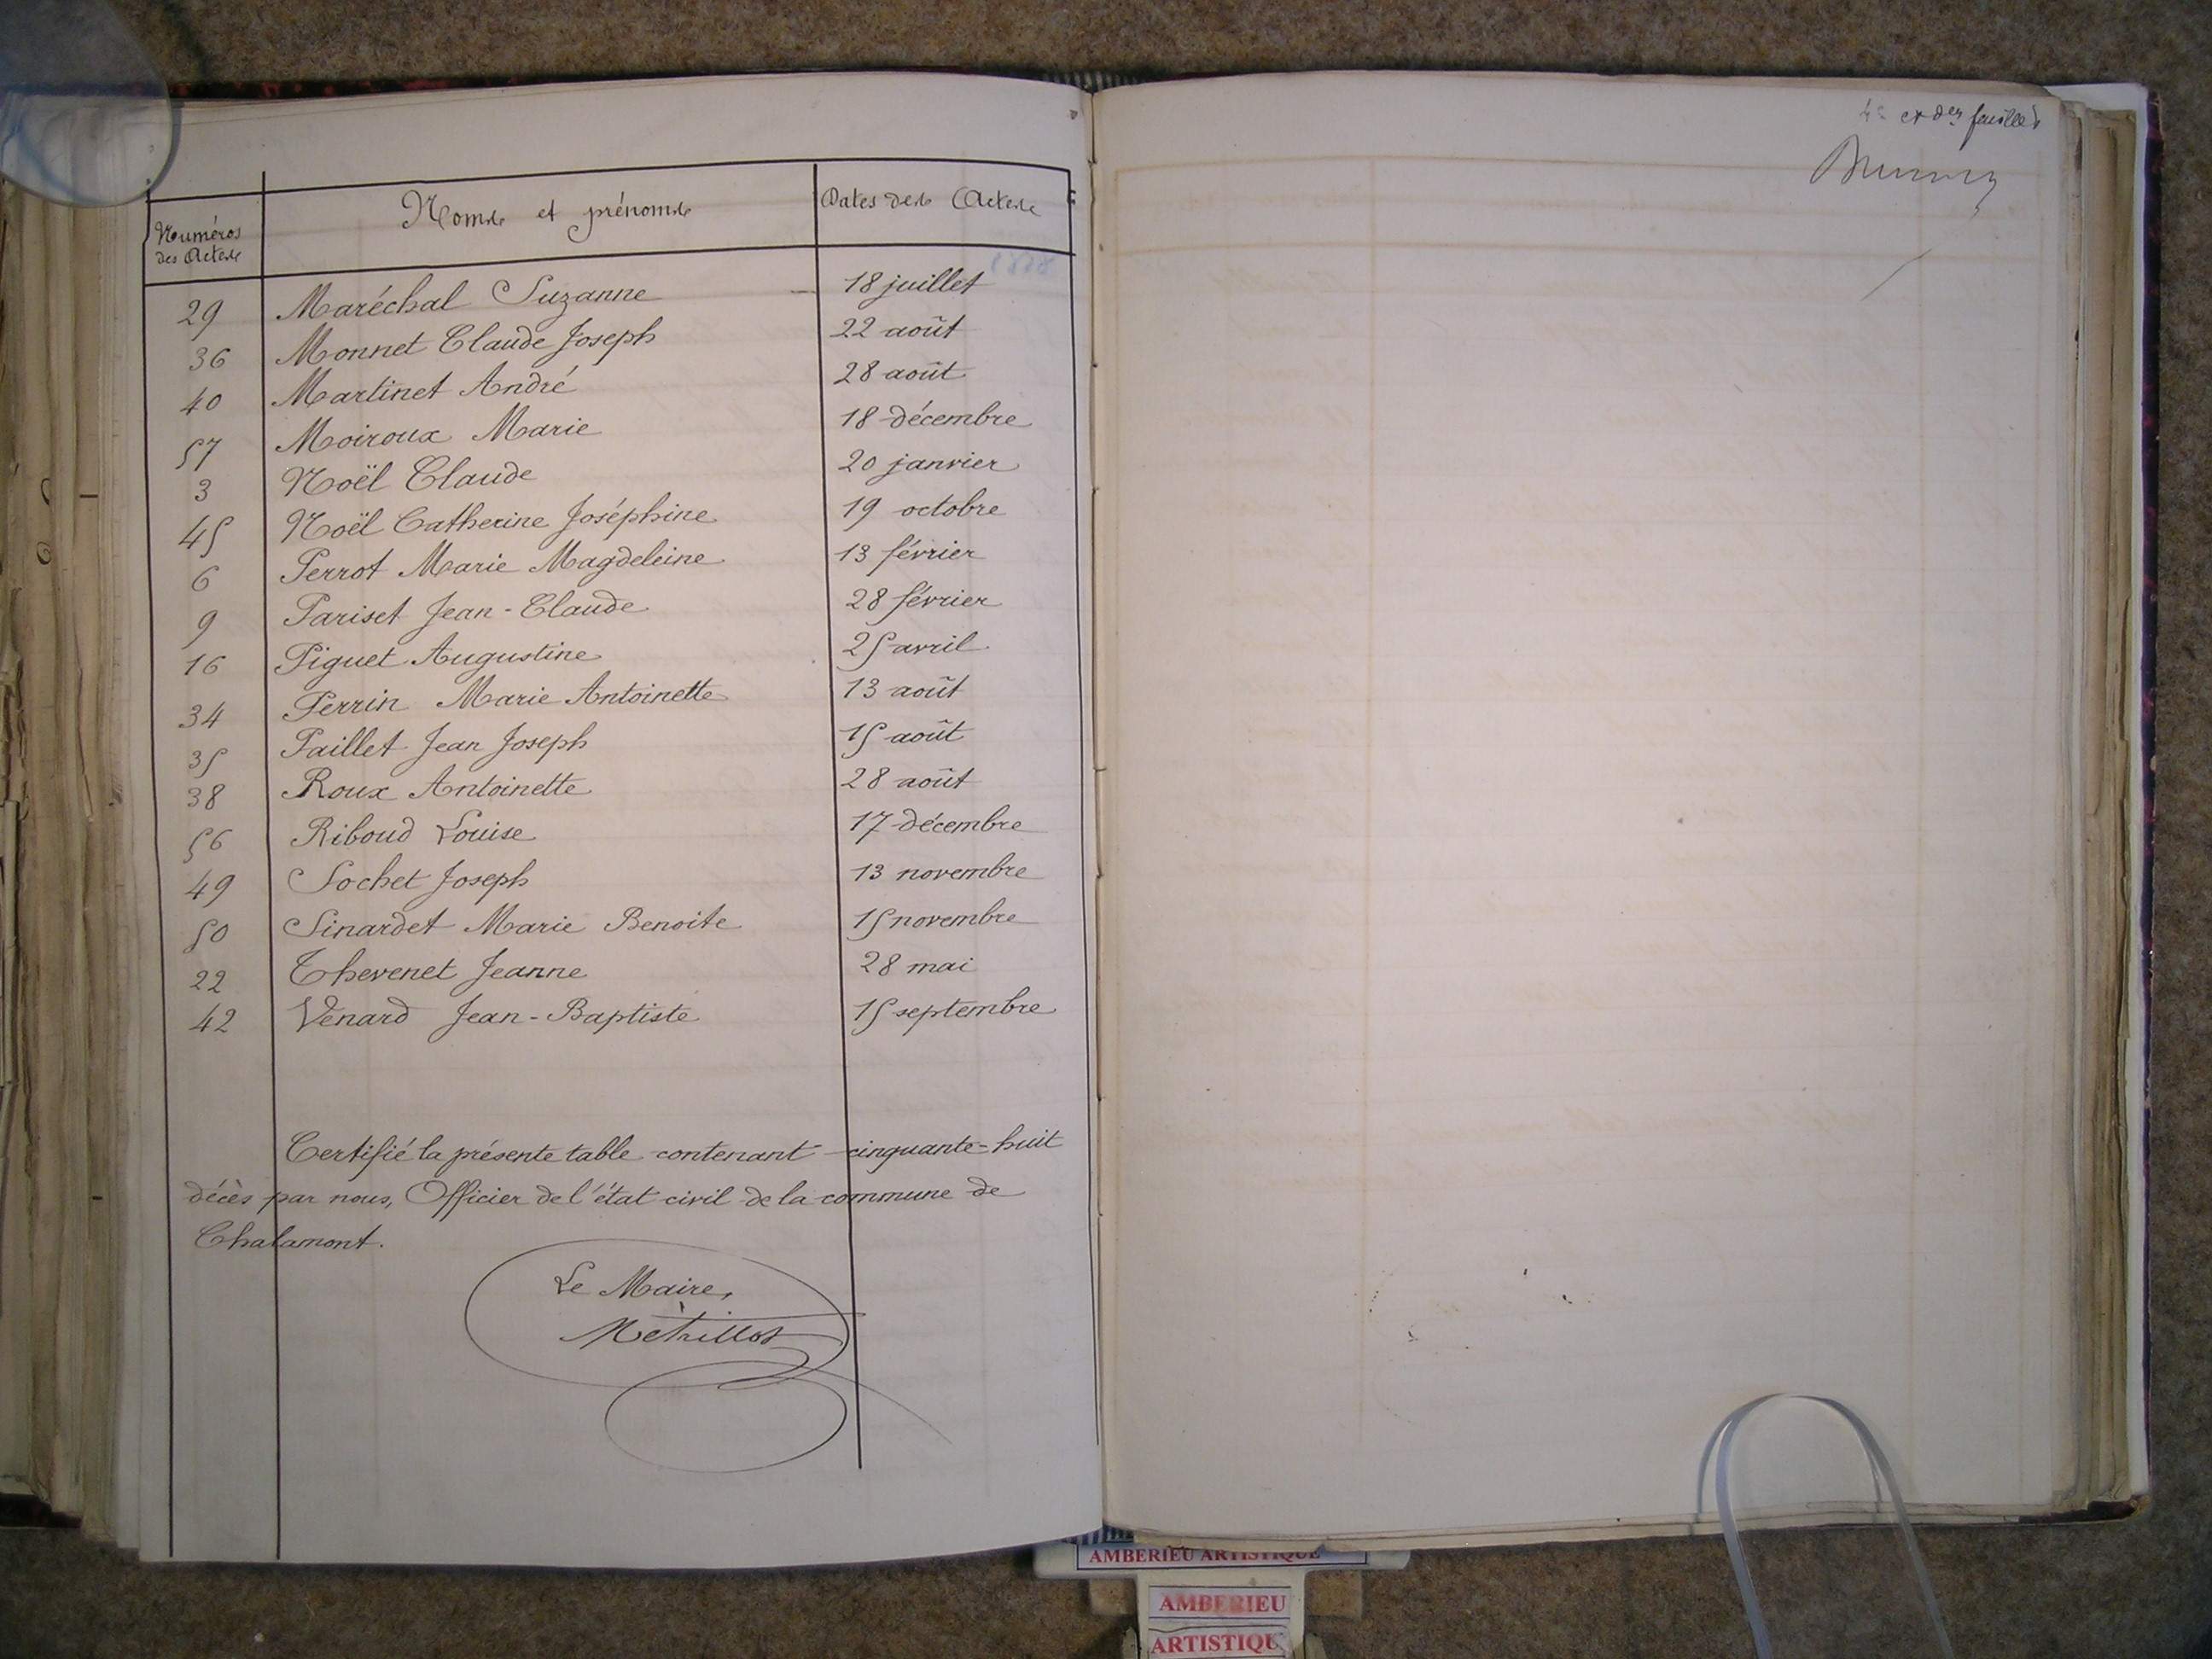 Numéros des Actes Noms et prénoms Dates des Actes
29 Maréchal Suzanne 18 juillet
36 Monnet Claude Joseph 22 août
40 Martinet André 28 août
57 Moiroux Marie 18 décembre
3 Noël Claude 20 janvier
45 Noël Catherine Joséphine 19 octobre
6 Perrot Marie Magdeleine 13 février
9 Pariset Jean-Claude 28 février
16 Piguet Augustine 25 avril
34 Perrin Marie Antoinette 13 août
35 Paillet Jean Joseph 15 août
38 Roux Antoinette 28 août
56 Riboud Louise 17 décembre
49 Sochet Joseph 13 novembre
50 Sinardet Marie Benoite 15 novembre
22 Thevenet Jeanne 28 mai
42 Venard Jean-Baptiste 15 septembre
Certifié la présente table contenant cinquante-huit
décès par nous, Officier de l'état civil de la commune de
Chalamont.
Le Maire,
et der feuillet
AMBERIEU ARTISTIQUE
AMBERIEU
ARTISTIQU